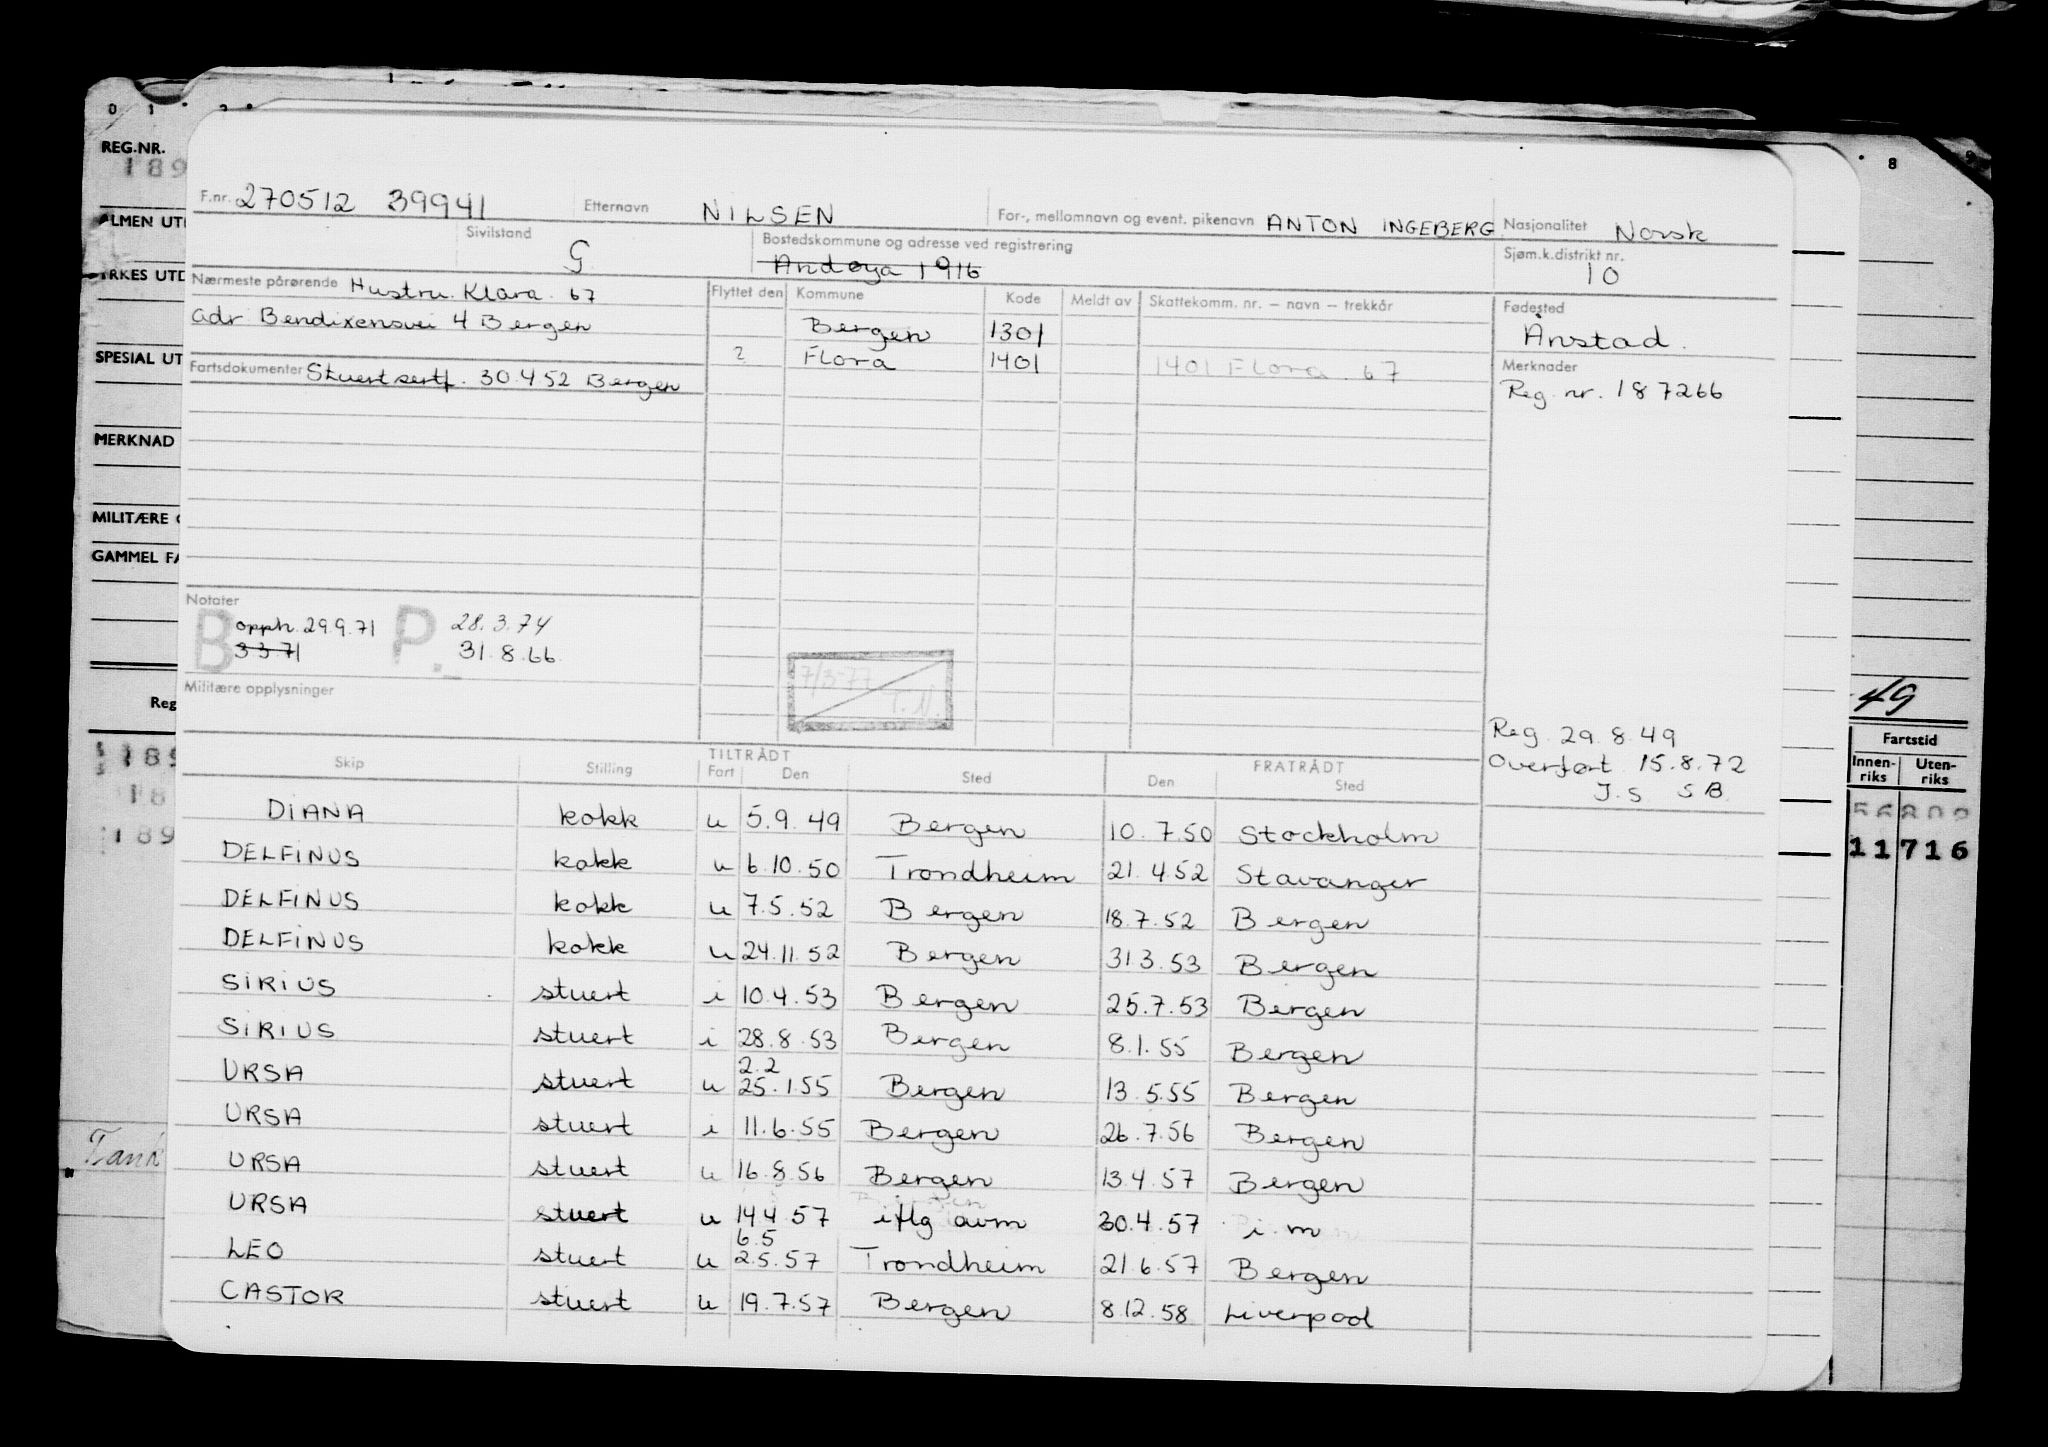 0 1
8
REG.NR.
189
ALMEN UT
YRKES UTD
SPESIAL UT
MERKNAD
MILITÆRE
GAMMEL FA
Reg
189
18
189
Tank
F.nr. 270512 39941 Etternavn NILSEN For-, mellomnavn og event. pikenavn ANTON INGEBERG Nasjonalitet Norsk
Sivilstand G Bostedskommune og adresse ved registrering Andøya 1916 Sjøm.k.distrikt nr. 10
Nærmeste pårørende Hustru Klara 67
adr. Bendixensvei 4 Bergen
Flyttet den Kommune Kode Meldt av Skattekomm. nr. – navn – trekkår
Bergen 1301
2 Flora 1401 1401 Flora 67
Fødested
Ånstad.
Fartsdokumenter Stuertsertf. 30.4.52 Bergen
Merknader
Reg. nr. 187266
Notater
B opph. 29.9.71 P. 28.3.74
3 3 71 31.8.66
7/3-77
T.N.
Militære opplysninger
Reg. 29.8.49
Overført 15.8.72
J.S SB
Skip Stilling TILTRÅDT Fart Den Sted FRATRÅDT Den Sted
DIANA kokk u 5.9.49 Bergen 10.7.50 Stockholm
DELFINUS kokk u 6.10.50 Trondheim 21.4.52 Stavanger
DELFINUS kokk u 7.5.52 Bergen 18.7.52 Bergen
DELFINUS kokk u 24.11.52 Bergen 31.3.53 Bergen
SIRIUS stuert i 10.4.53 Bergen 25.7.53 Bergen
SIRIUS stuert i 28.8.53 Bergen 8.1.55 Bergen
2.2
URSA stuert u 25.1.55 Bergen 13.5.55 Bergen
URSA stuert i 11.6.55 Bergen 26.7.56 Bergen
URSA stuert u 16.8.56 Bergen 13.4.57 Bergen
URSA stuert u 14.4.57 iflg avm 30.4.57 i.m
6.5
LEO stuert u 2.5.57 Trondheim 21.6.57 Bergen
CASTOR stuert u 19.7.57 Bergen 8.12.58 Liverpool
49
Fartstid
Innen-riks Uten-riks
11 716